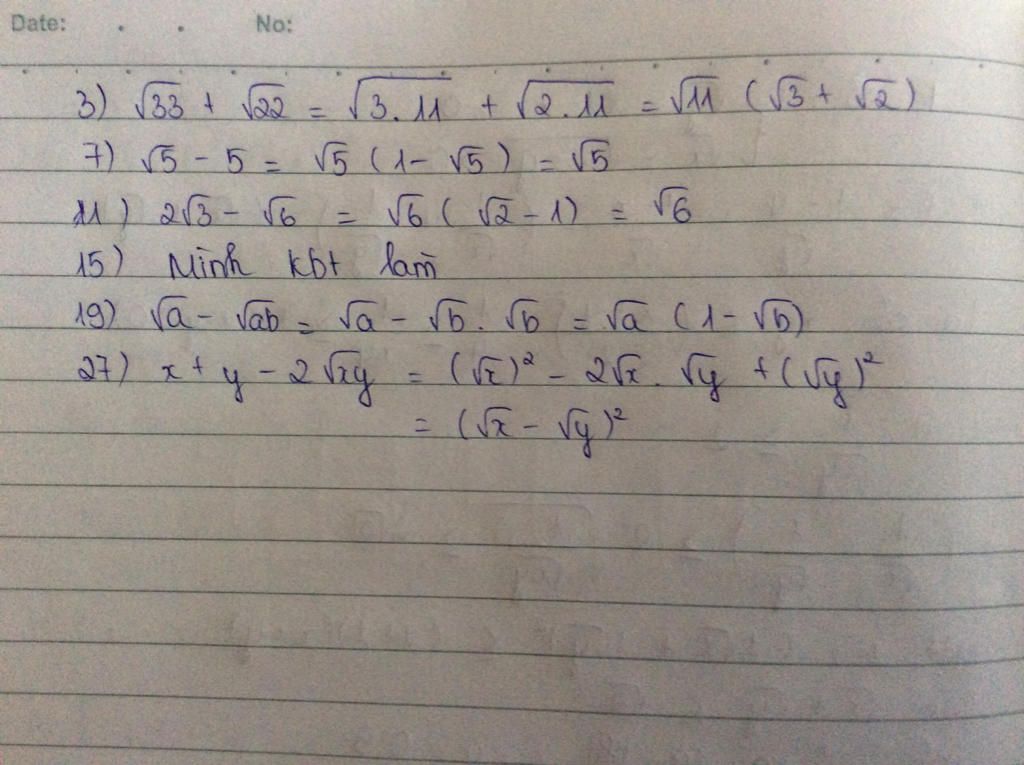 Date: . . No:
3) √33 + √22 = √3.11 + √2.11 = √11 (√3 + √2)
7) √5 - 5 = √5 (1 - √5) = √5
11) 2√3 - √6 = √6 (√2 - 1) = √6
15) Mình kbt làm
19) √a - √ab = √a - √b . √b = √a (1 - √b)
27) x + y - 2√xy = (√x)² - 2√x . √y + (√y)²
= (√x - √y)²